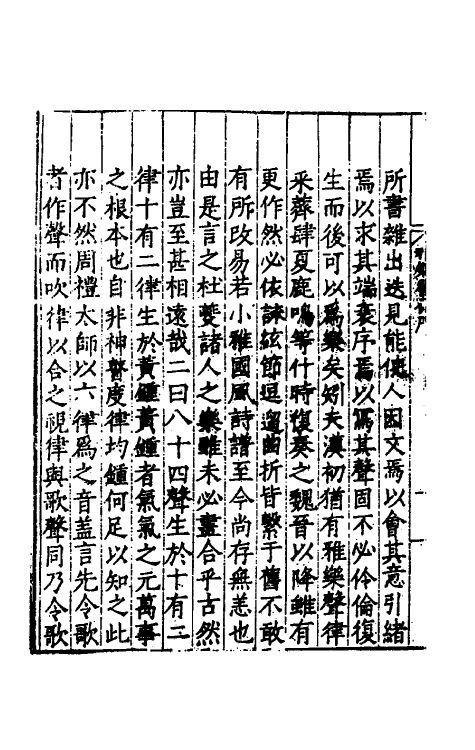 所書雜出迭見能使人因文焉以會其意引緒
焉以求其端衮序焉以寫其聲固不必伶倫復
生而後可以爲樂矣矧夫漢初猶有雅樂聲律
采薺肆夏鹿鳴等什時復奏之魏晉以降雖有
更作然必依詠絃節逗遛曲折皆繫于舊不敢
有所改易若小雅國風詩譜至今尚存無恙也
由是言之杜夔諸人之樂雖未必盡合乎古然
亦豈至甚相遠哉二曰八十四聲生於十有二
律十有二律生於黃鍾黃鍾者氣氣之元萬事
之根本也自非神瞽度律均鍾何足以知之此
亦不然周禮太師以六律爲之音蓋言先令歌
者作聲而吹律以合之視律與歌聲同乃令歌